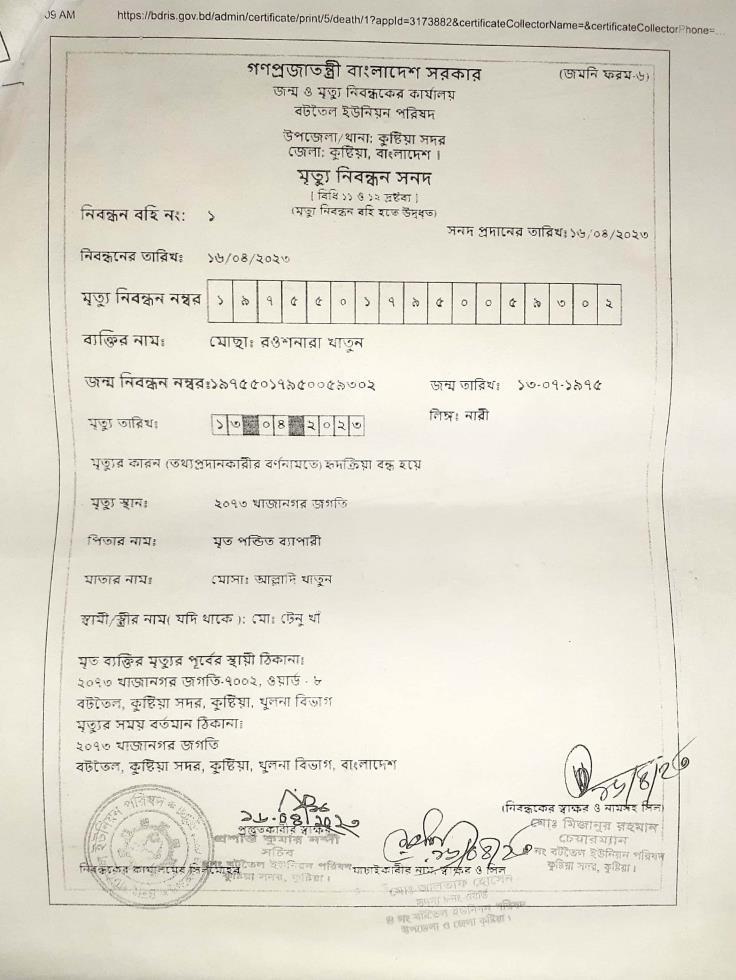 09 AM https://bdris.gov.bd/admin/certificate/print/5/death/1?appId=3173882&certificateCollectorName=&certificateCollectorPhone=...
গণপ্রজাতন্ত্রী বাংলাদেশ সরকার (জমনি ফরম-৬)
জন্ম ও মৃত্যু নিবন্ধকের কার্যালয়
বটতৈল ইউনিয়ন পরিষদ
উপজেলা/থানা: কুষ্টিয়া সদর
জেলা: কুষ্টিয়া, বাংলাদেশ ।
মৃত্যু নিবন্ধন সনদ
[ বিধি ১১ ও ১২ দ্রষ্টব্য ]
(মৃত্যু নিবন্ধন বহি হতে উদ্ধৃত)
নিবন্ধন বহি নং: ১
সনদ প্রদানের তারিখ:১৬/০৪/২০২৩
নিবন্ধনের তারিখ: ১৬/০৪/২০২৩
মৃত্যু নিবন্ধন নম্বর ১ ৯ ৭ ৫ ৫ ০ ১ ৭ ৯ ৫ ০ ০ ৫ ৯ ৩ ০ ২
ব্যক্তির নাম: মোছা: রওশনারা খাতুন
জন্ম নিবন্ধন নম্বর:১৯৭৫৫০১৭৯৫০০৫৯৩০২ জন্ম তারিখ: ১৩-০৭-১৯৭৫
মৃত্যু তারিখ: ১ ৩ ০ ৪ ২ ০ ২ ৩ লিঙ্গ: নারী
মৃত্যুর কারন (তথ্যপ্রদানকারীর বর্ণনামতে) হৃদক্রিয়া বন্ধ হয়ে
মৃত্যু স্থান: ২০৭৩ খাজানগর জগতি
পিতার নাম: মৃত পন্ডিত ব্যাপারী
মাতার নাম: মোসা: আল্লাদি খাতুন
স্বামী/স্ত্রীর নাম( যদি থাকে ): মো: টেনু খাঁ
মৃত ব্যক্তির মৃত্যুর পূর্বের স্থায়ী ঠিকানা:
২০৭৩ খাজানগর জগতি-৭০০২, ওয়ার্ড - ৮
বটতৈল, কুষ্টিয়া সদর, কুষ্টিয়া, খুলনা বিভাগ
মৃত্যুর সময় বর্তমান ঠিকানা:
২০৭৩ খাজানগর জগতি
বটতৈল, কুষ্টিয়া সদর, কুষ্টিয়া, খুলনা বিভাগ, বাংলাদেশ
১৬/৪/২৩
(নিবন্ধকের স্বাক্ষর ও নামসহ সিল)
মোঃ মিজানুর রহমান
চেয়ারম্যান
নং বটতৈল ইউনিয়ন পরিষদ
কুষ্টিয়া সদর, কুষ্টিয়া।
১৬.০৪/২০২৩
প্রস্তুতকারীর স্বাক্ষর
সচিব
নং বটতৈল ইউনিয়ন পরিষদ
কুষ্টিয়া সদর, কুষ্টিয়া।
নিবন্ধকের কার্যালয়ের
১৬/০৪/২৩
যাচাইকারীর নাম, স্বাক্ষর ও সিল
মোঃ আলতাফ হোসেন
নং বটতৈল ইউনিয়ন পরিষদ
উপজেলা ও জেলা কুষ্টিয়া।
ইউনিয়ন পরিষদ